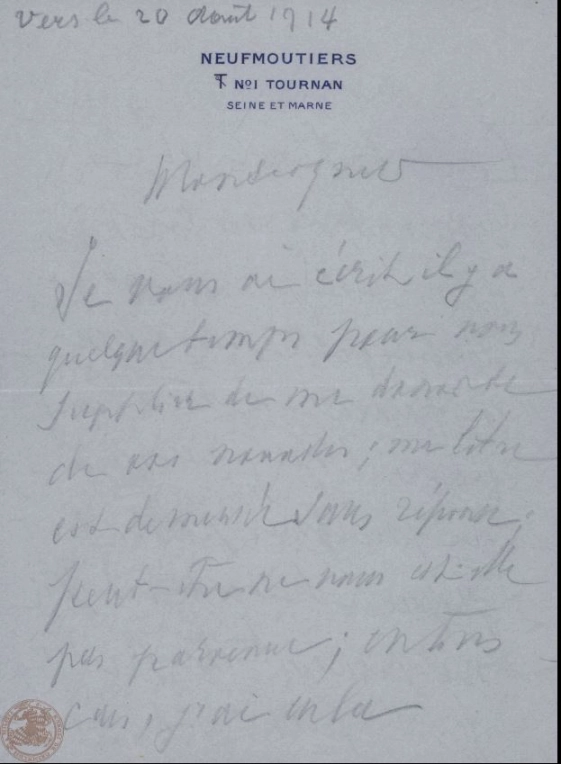 Vers le 20 août 1914
NEUFMOUTIERS
T Nº1 TOURNAN
SEINE ET MARNE
Monseigneur
Je vous ai écrit il y a
quelque temps pour vous
supplier de me donner de
de vos nouvelles ; ma lettre
est demeurée sans réponse ;
peut-être ne vous est-elle
pas parvenue ; en tous
cas, j'ai